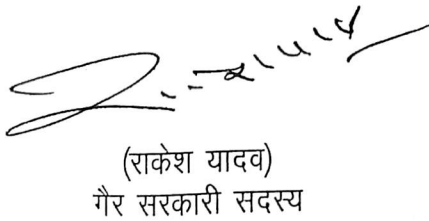 (राकेश यादव)
गैर सरकारी सदस्य